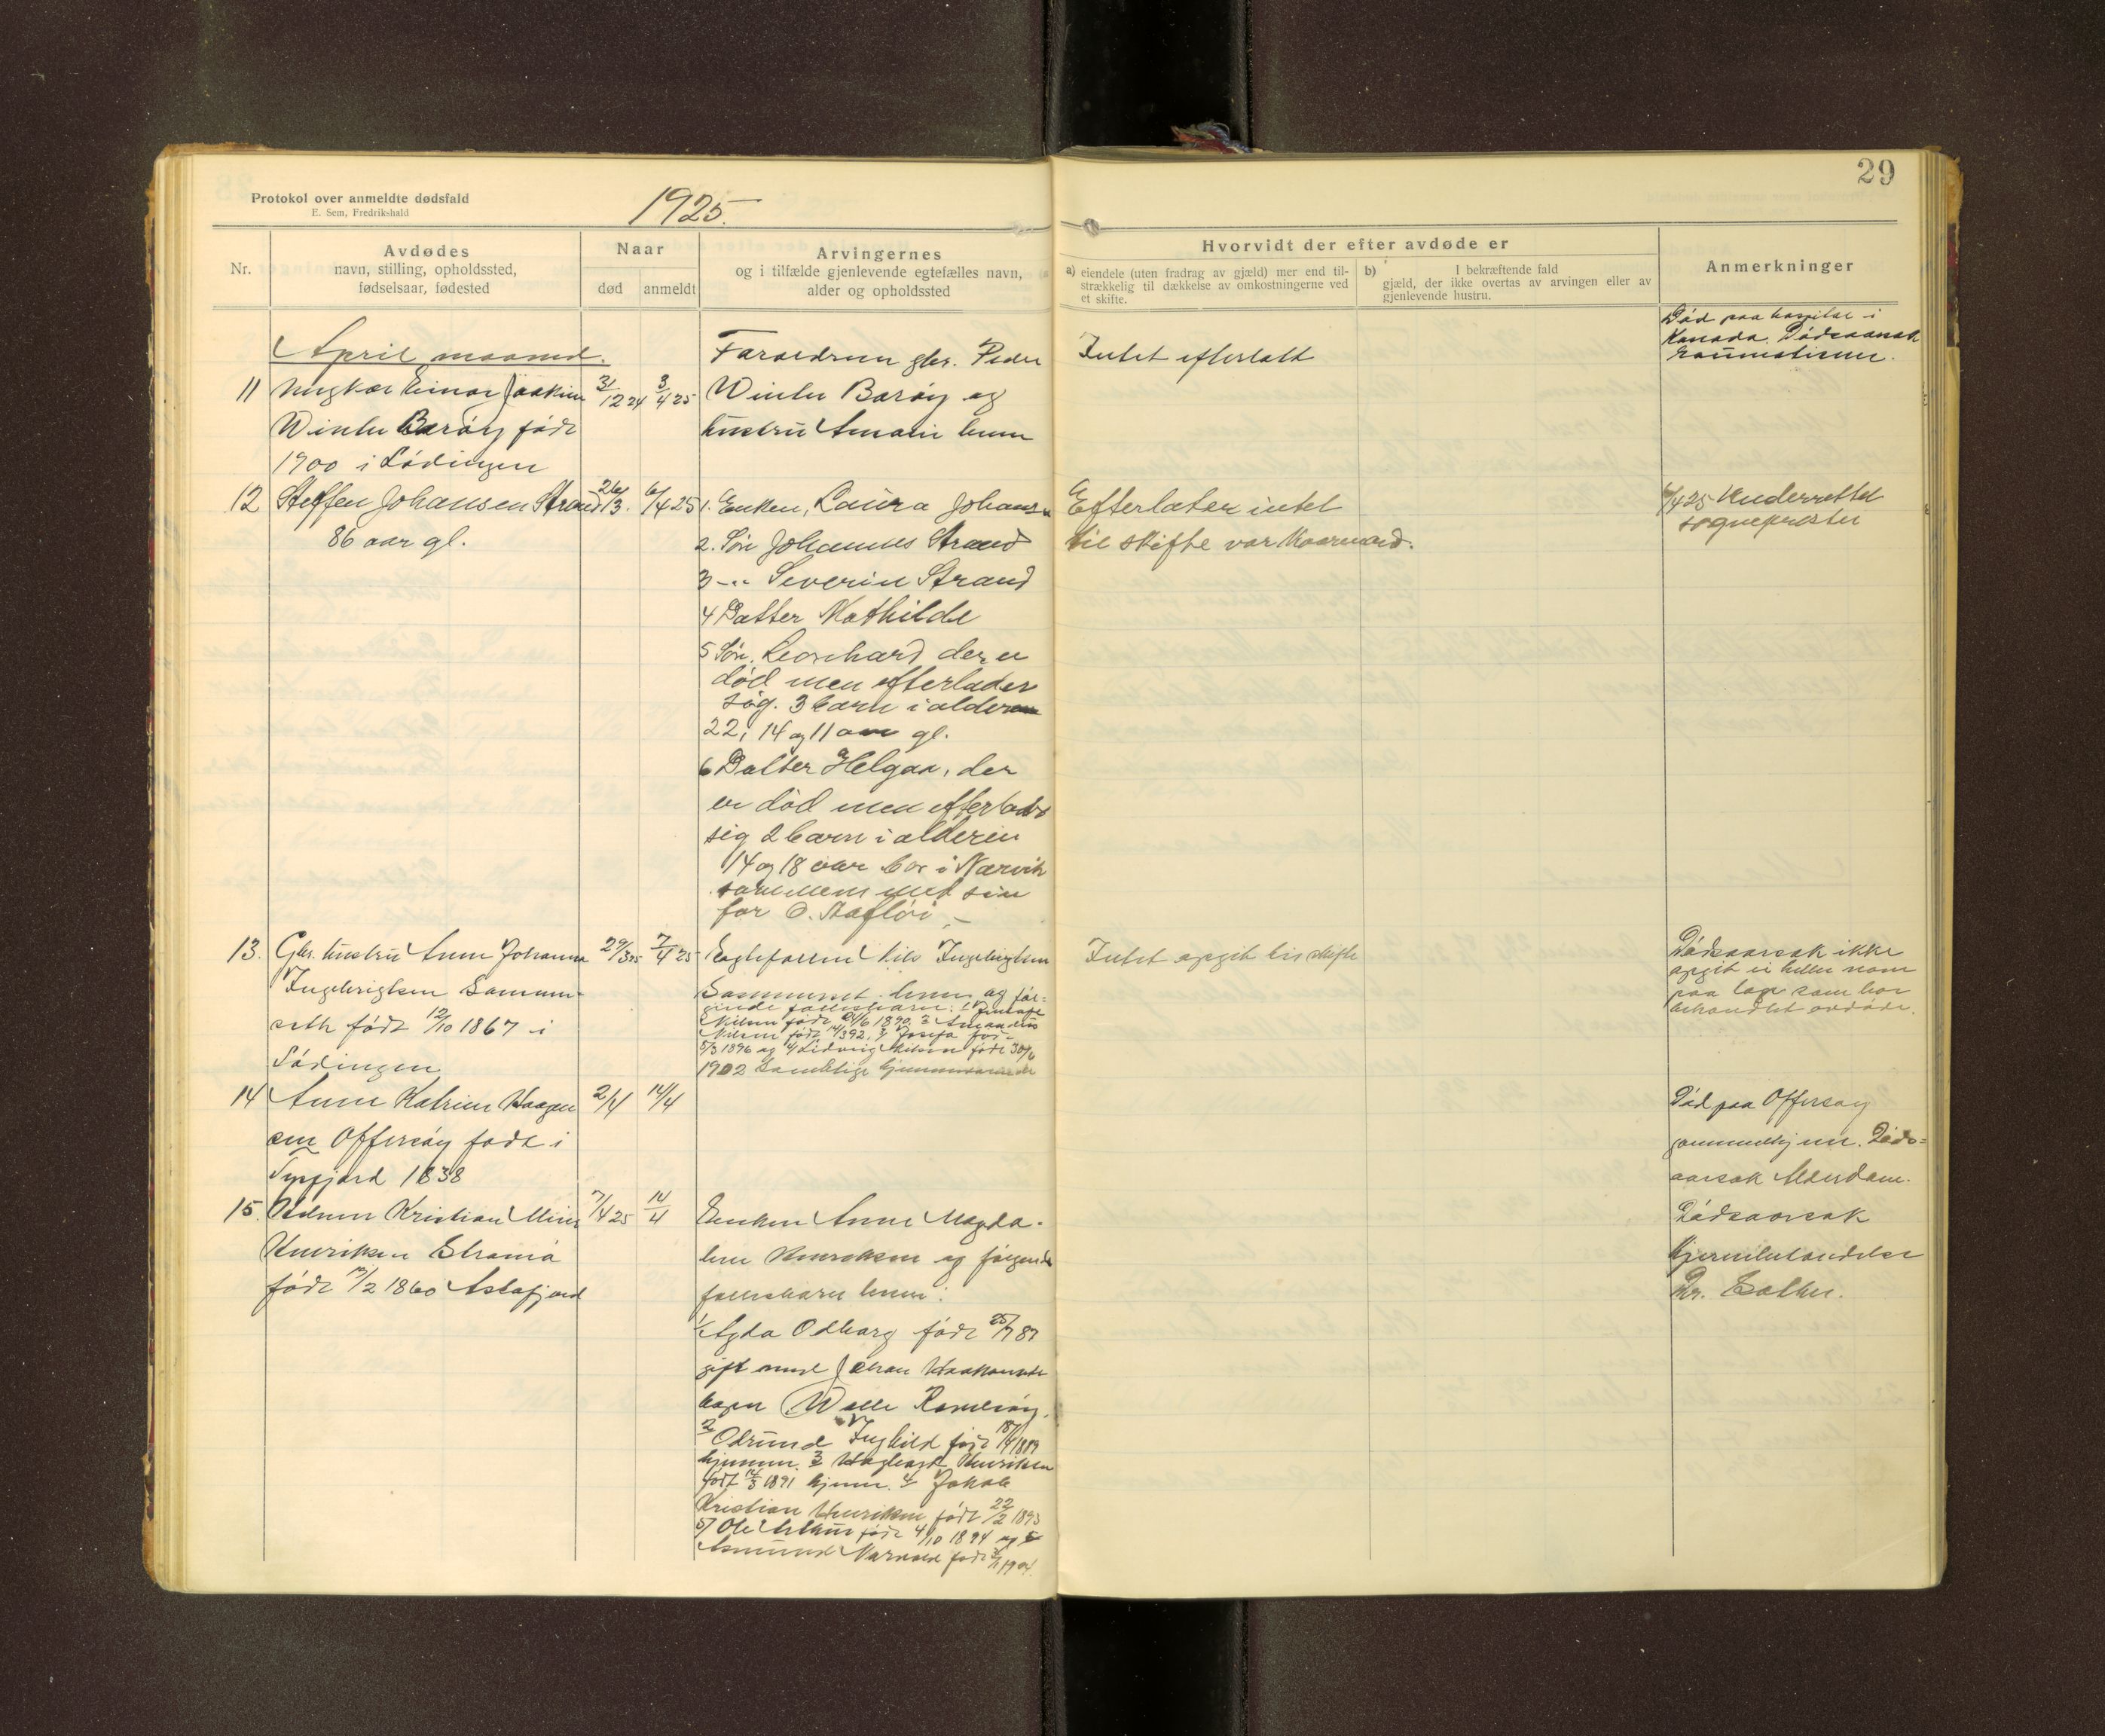 29
Protokol over anmeldte dødsfald
E. Sem, Fredrikshald
1925.
Nr.
Avdødes
navn, stilling, opholdssted,
fødselsaar, fødested
Naar
død
anmeldt
Arvingernes
og i tilfælde gjenlevende egtefælles navn,
alder og opholdssted
Hvorvidt der efter avdøde er
a) eiendele (uten fradrag av gjæld) mer end til-
strækkelig til dækkelse av omkostningerne ved
et skifte.
b) I bekræftende fald
gjæld, der ikke overtas av arvingen eller av
gjenlevende hustru.
Anmerkninger
April maaned.
11 Ungkar Einar Joakim
Winter Barøy født
1900 i Lødingen
31/12 24
3/4 25
Foreldrene gbr. Peder
Winter Barøy og
hustru Amalie
Intet efterlatt
Død paa hospital i
Kanada. Dødsaarsak
12 Steffen Johansen Strand
86 aar gl.
26/3.
6/4 25
1. Enken, Laura Johansen
2. Søn Johannes Strand
3 -"- Severin Strand
4 Datter Mathilde
5 Søn, Leonhard der er
død men efterlader
sig. 3 barn i alderen
22, 14 og 11 aar gl.
6 Datter Helga, der
er død men efterlader
sig 2 barn i alderen
14 og 18 aar bor i Narvik
sammen med sin
far O.
Efterlater intet
til skifte var
6/4 25 Underrettet
sognepresten
13. Gbr. hustru Anne Johanna
Ingebrigtsen
født 12/10 1867 i
Lødingen
29/3 25
7/4 25
Egtefællen Nils Ingebrigtsen
og føl-
gende fællesbarn: 1
Nilsen født 24/6 1890, 2 Amandus
Nilsen født 14/3 92, 3 Josefa født
5/3 1896 og 4/ Ludvig Nilsen født 30/6
1902 Samtlige
Intet opgit til skifte
Dødsaarsak ikke
opgit ei heller navn
paa læge som har
behandlet avdøde.
14 Anne Katrine Haagen-
sen Offersøy født i
Tysfjord 1838
2/4
14/4
Død paa Offersøy
gammelhjem. Døds-
aarsak Alderdom.
15. Kristian
Henriksen
født 1860 Astafjord
7/4 25
14/4
Enken Anne Magda-
lene Henriksen og følgende
fællesbarn
1/ Agda Odbarg født 25/7 87
gift med Johan
2 Odrund Ingbild født 1889
hjemme. 3 Henriksen
født 14/3 1891 hjem. 4 Jakob
Kristian Henriksen født 22/2 1893
5/ Ole født 4/10 1894 og
Asmund født 1904.
Dødsaarsak
Dr.